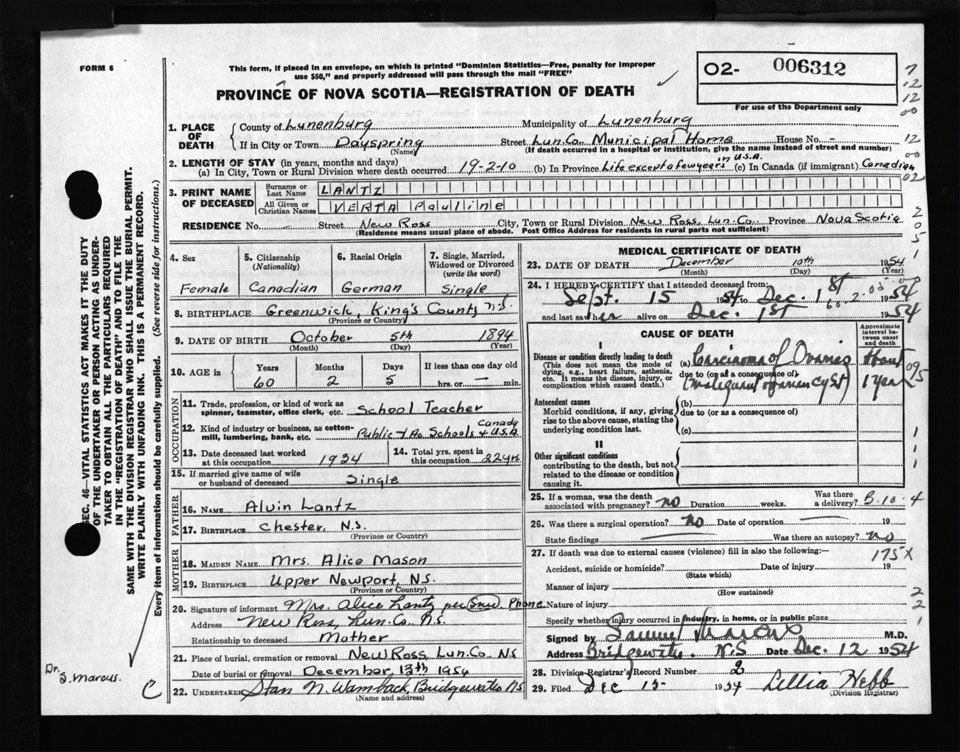 FORM 6
This form, if placed in an envelope, on which is printed "Dominion Statistics—Free, penalty for improper
use $50," and properly addressed will pass through the mail "FREE"
PROVINCE OF NOVA SCOTIA—REGISTRATION OF DEATH
O2- 006312
For use of the Department only
1. PLACE OF DEATH
County of Lunenburg Municipality of Lunenburg
If in City or Town Dayspring Street Lun. Co. Municipal Home House No. -
(Name) (If death occurred in a hospital or institution, give the name instead of street and number)
2. LENGTH OF STAY (in years, months and days)
(a) In City, Town or Rural Division where death occurred 19-2-10 (b) In Province Life except a few years in U.S.A. (c) In Canada (if immigrant) Canadian
3. PRINT NAME OF DECEASED
Surname or Last Name LANTZ
All Given or Christian Names VERTA Paulline
RESIDENCE No. Street New Ross City, Town or Rural Division New Ross, Lun. Co. Province Nova Scotia
(Residence means usual place of abode. Post Office Address for residents in rural parts not sufficient)
4. Sex
Female
5. Citizenship (Nationality)
Canadian
6. Racial Origin
German
7. Single, Married, Widowed or Divorced (write the word)
Single
8. BIRTHPLACE Greenwick, King's County N.S.
(Province or Country)
9. DATE OF BIRTH October 5th 1894
(Month) (Day) (Year)
10. AGE in Years Months Days If less than one day old
60 2 5 hrs. or — min.
OCCUPATION
11. Trade, profession, or kind of work as spinner, teamster, office clerk, etc. School Teacher
12. Kind of industry or business, as cotton-mill, lumbering, bank, etc. Public Schools Canada & U.S.A.
13. Date deceased last worked at this occupation 1934
14. Total yrs. spent in this occupation 22 yrs.
15. If married give name of wife or husband of deceased Single
FATHER
16. Name Alvin Lantz
17. Birthplace Chester, N.S.
(Province or Country)
MOTHER
18. Maiden Name Mrs. Alice Mason
19. Birthplace Upper Newport, N.S.
(Province or Country)
20. Signature of informant Mrs. Alice Lantz per Phone
Address New Ross, Lun. Co. N.S.
Relationship to deceased Mother
21. Place of burial, cremation or removal New Ross, Lun. Co. N.S
Date of burial or removal December 13th 1954
22. Undertaker Stan N. Wamback, Bridgewater NS
(Name and address)
MEDICAL CERTIFICATE OF DEATH
23. DATE OF DEATH December 10th 1954
(Month) (Day) (Year)
24. I HEREBY CERTIFY that I attended deceased from:
Sept. 15 1954 to Dec. 1st 1954
and last saw her alive on Dec. 1st 1954
CAUSE OF DEATH
Approximate interval between onset and death
I
Disease or condition directly leading to death (a) Carcinoma of Ovaries
(This does not mean the mode of dying, e.g., heart failure, asthenia, etc. It means the disease, injury, or complication which caused death.)
due to (or as a consequence of)
1 year
Antecedent causes
Morbid conditions, if any, giving rise to the above cause, stating the underlying condition last.
(b)
due to (or as a consequence of)
(c)
II
Other significant conditions
contributing to the death, but not related to the disease or condition causing it.
25. If a woman, was the death associated with pregnancy? no Duration weeks. Was there a delivery?
26. Was there a surgical operation? no Date of operation 19
State findings Was there an autopsy? no
27. If death was due to external causes (violence) fill in also the following:—
175X
Accident, suicide or homicide? Date of injury 19
(State which)
Manner of injury
(How sustained)
Nature of injury
Specify whether injury occurred in industry, in home, or in public place
Signed by M.D.
Address Bridgewater N.S Date Dec. 12 1954
28. Division Registrar's Record Number 2
29. Filed Dec 15- 1954 Lellia Hebb
(Division Registrar)
SEC. 46—VITAL STATISTICS ACT MAKES IT THE DUTY
OF THE UNDERTAKER OR PERSON ACTING AS UNDER-
TAKER TO OBTAIN ALL THE PARTICULARS REQUIRED
IN THE "REGISTRATION OF DEATH" AND TO FILE THE
SAME WITH THE DIVISION REGISTRAR WHO SHALL ISSUE THE BURIAL PERMIT.
WRITE PLAINLY WITH UNFADING INK. THIS IS A PERMANENT RECORD.
Every item of information should be carefully supplied. (See reverse side for instructions.)
Dr. S. Marcus.